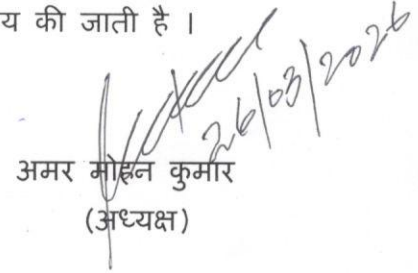 य की जाती है ।
26/03/2026
अमर मोहन कुमार
(अध्यक्ष)